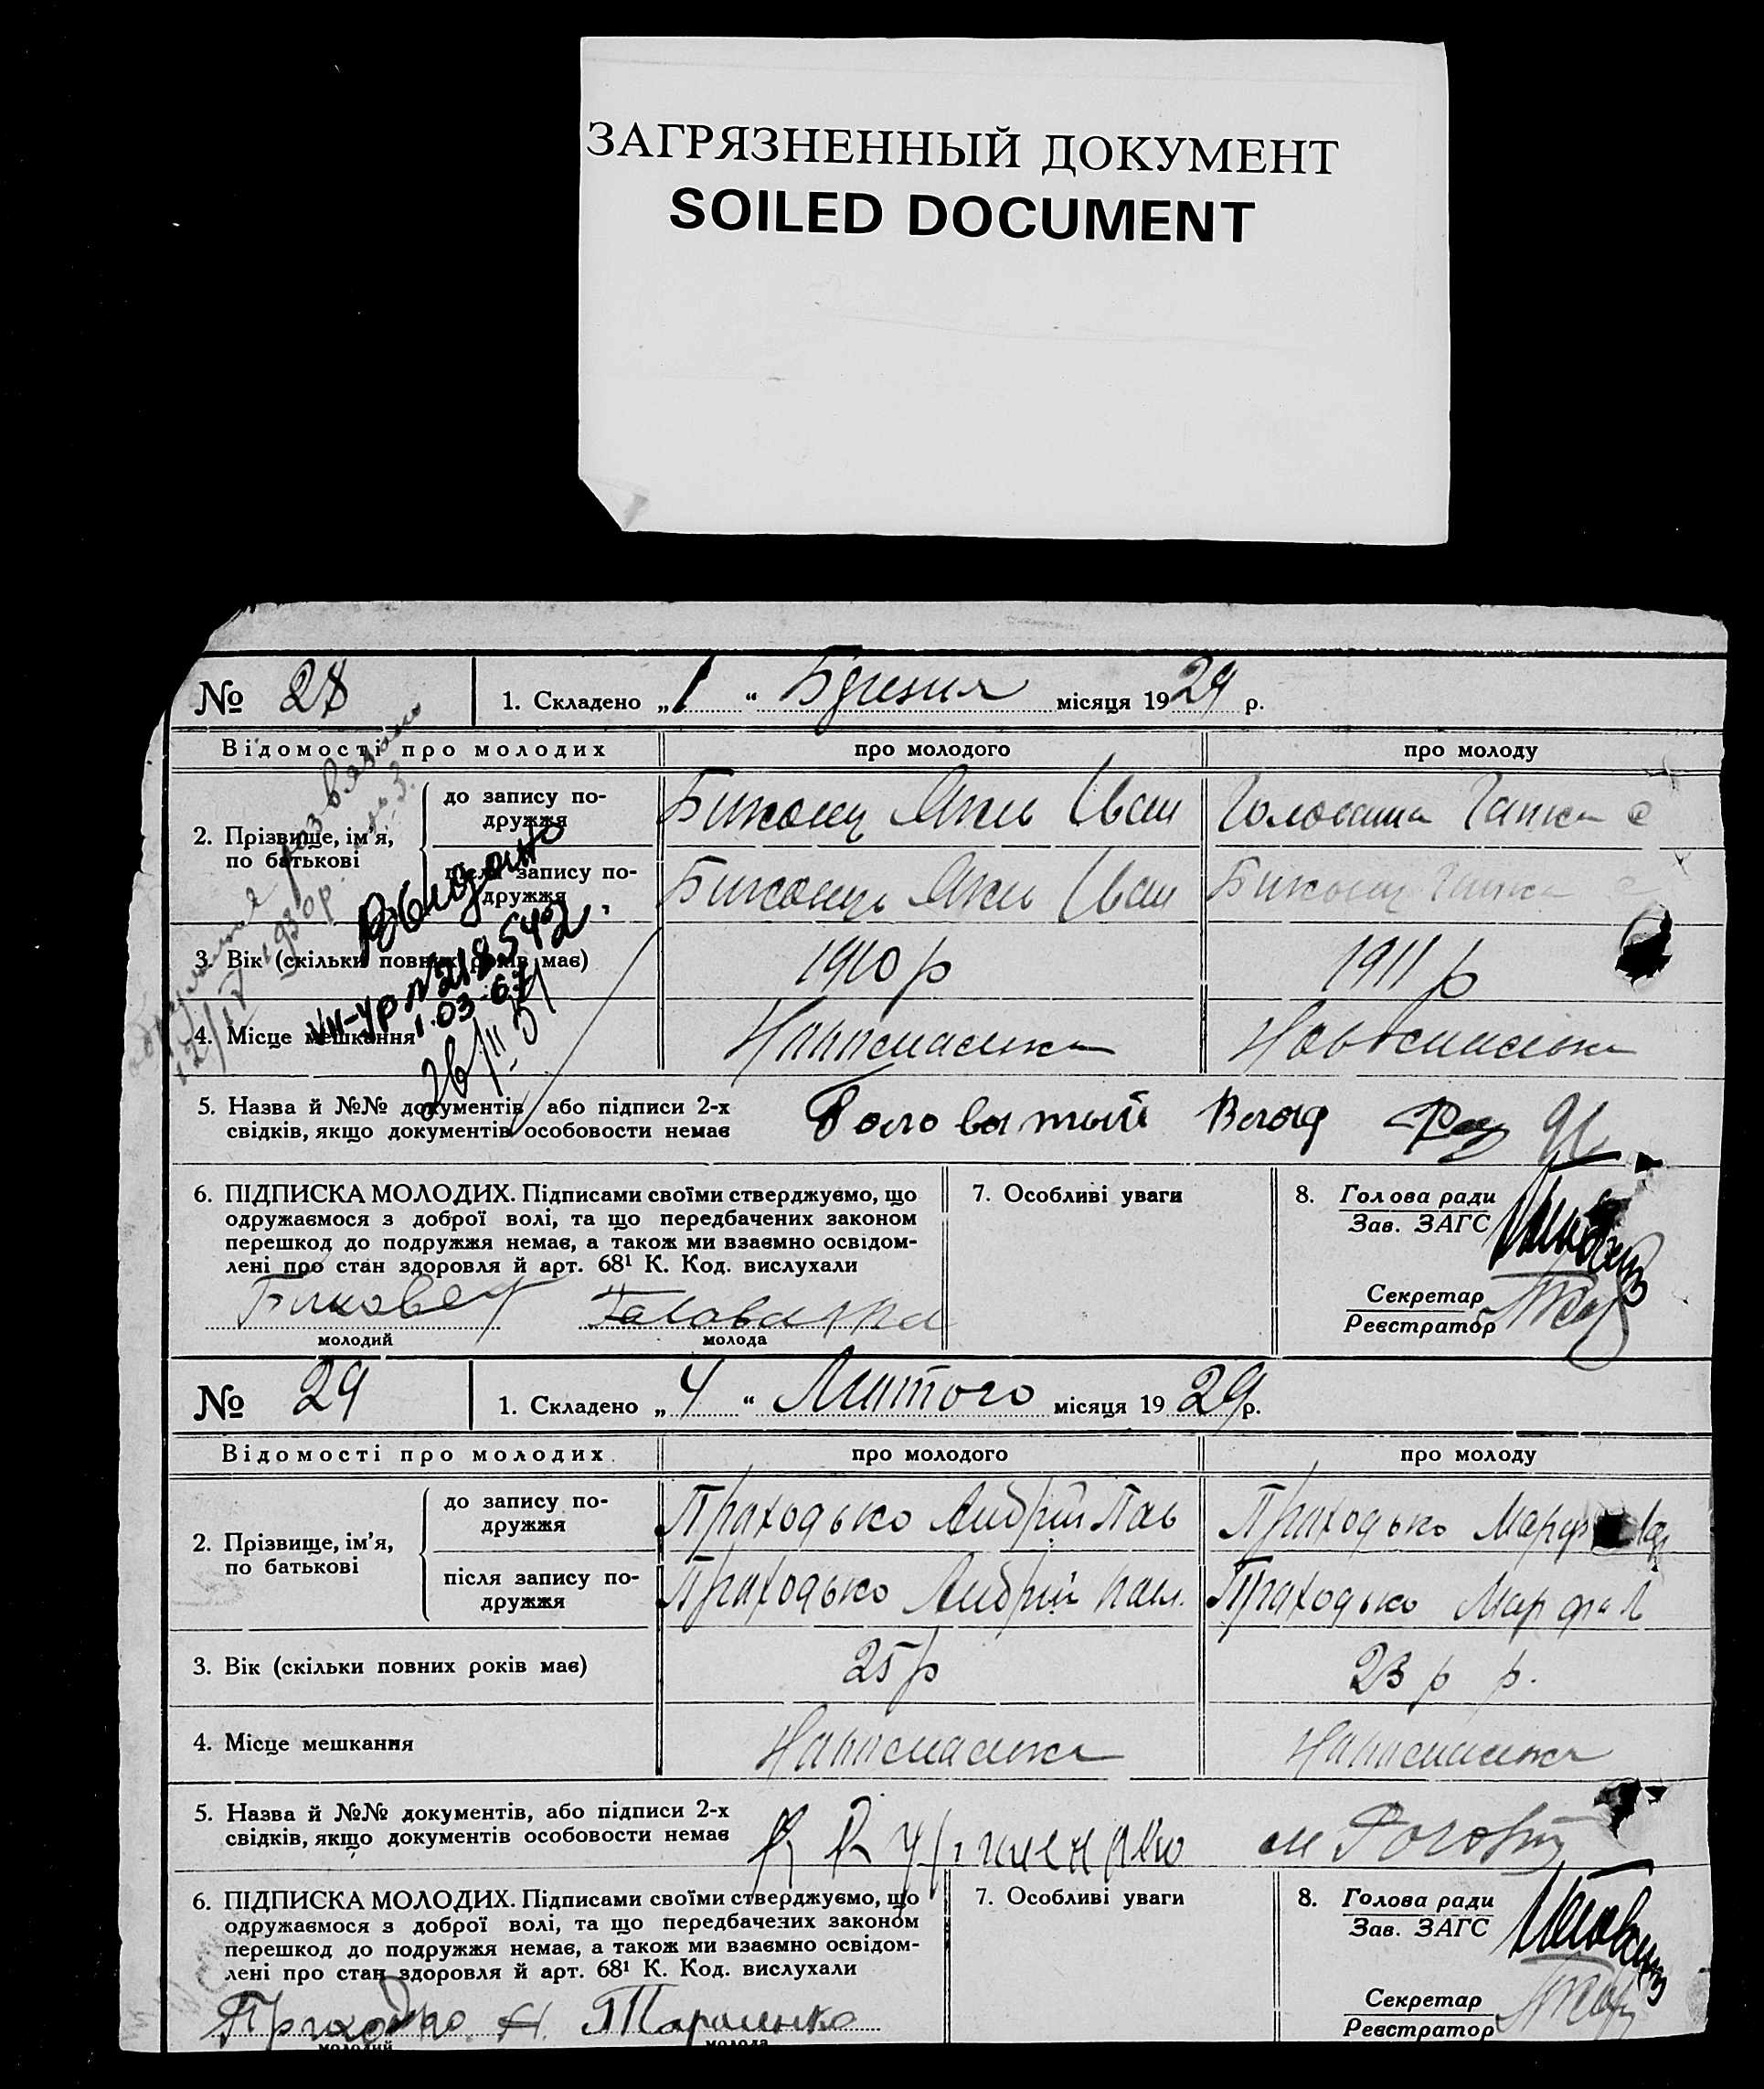 ЗАГРЯЗНЕННЫЙ ДОКУМЕНТ
SOILED DOCUMENT
№ 28 1. Складено „1“ Березня місяця 1929 р.
Відомості про молодих про молодого про молоду
2. Прізвище, ім'я, по батькові
до запису подружжя Биковец Яков Иван Головата Гапка
після запису подружжя Биковец Яков Иван Биковец Гапка
3. Вік (скільки повних років має) 1910 р 1911 р
4. Місце мешкання
Видано
VII-УР № 218542
1.03.67
5. Назва й №№ документів або підписи 2-х
свідків, якщо документів особовости немає Головатый
6. ПІДПИСКА МОЛОДИХ. Підписами своїми стверджуємо, що
одружаємося з доброї волі, та що передбачених законом
перешкод до подружжя немає, а також ми взаємно освідом-
лені про стан здоров'я й арт. 68¹ К. Код. вислухали
Биковец Головатна
молодий молода
7. Особливі уваги
8. Голова ради
Зав. ЗАГС
Секретар
Реєстратор
№ 29 1. Складено „4“ Лютого місяця 1929 р.
Відомості про молодих про молодого про молоду
2. Прізвище, ім'я, по батькові
до запису подружжя Праходько Андрій Пав Праходько Марф
після запису подружжя Праходько Андрій Павл. Праходько Марфа Л
3. Вік (скільки повних років має) 25 р 23 р р.
4. Місце мешкання
5. Назва й №№ документів, або підписи 2-х
свідків, якщо документів особовости немає
6. ПІДПИСКА МОЛОДИХ. Підписами своїми стверджуємо, що
одружаємося з доброї волі, та що передбачених законом
перешкод до подружжя немає, а також ми взаємно освідом-
лені про стан здоровля й арт. 68¹ К. Код. вислухали
Приходько А. Тараненко
молодий молода
7. Особливі уваги
8. Голова ради
Зав. ЗАГС
Секретар
Реєстратор